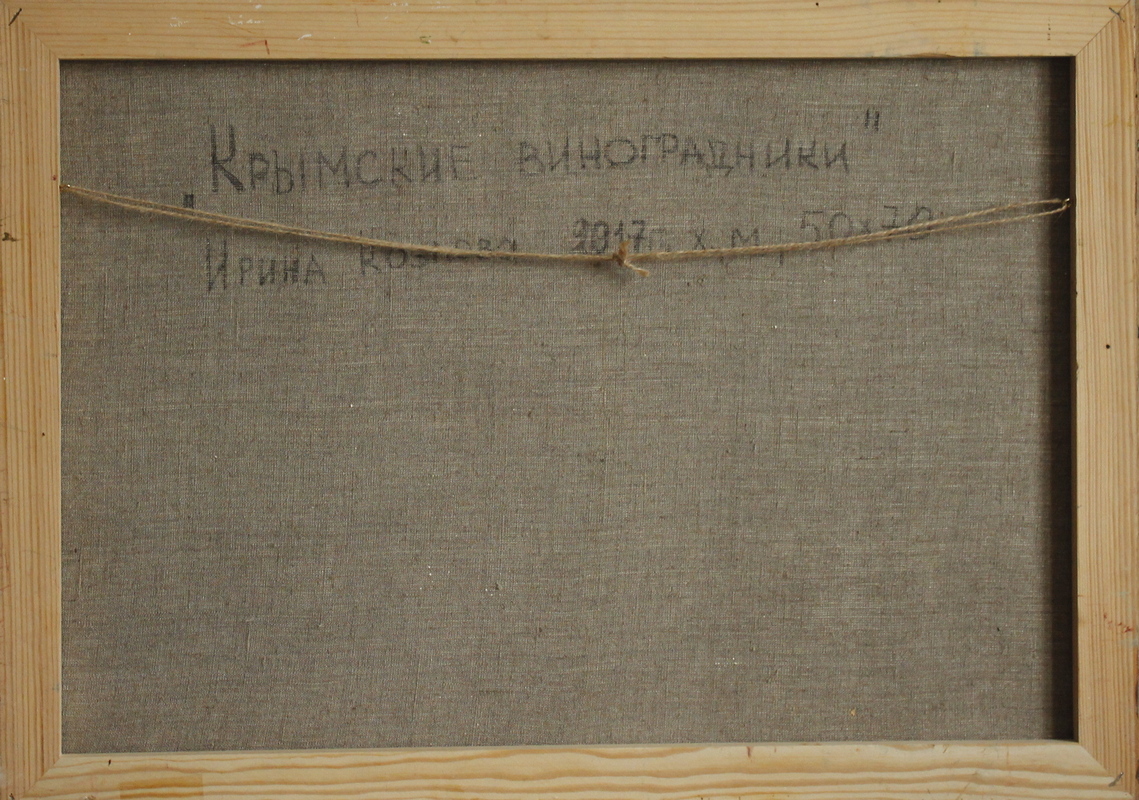 "Крымские виноградники"
Ирина 2017г. х.м., 50х70